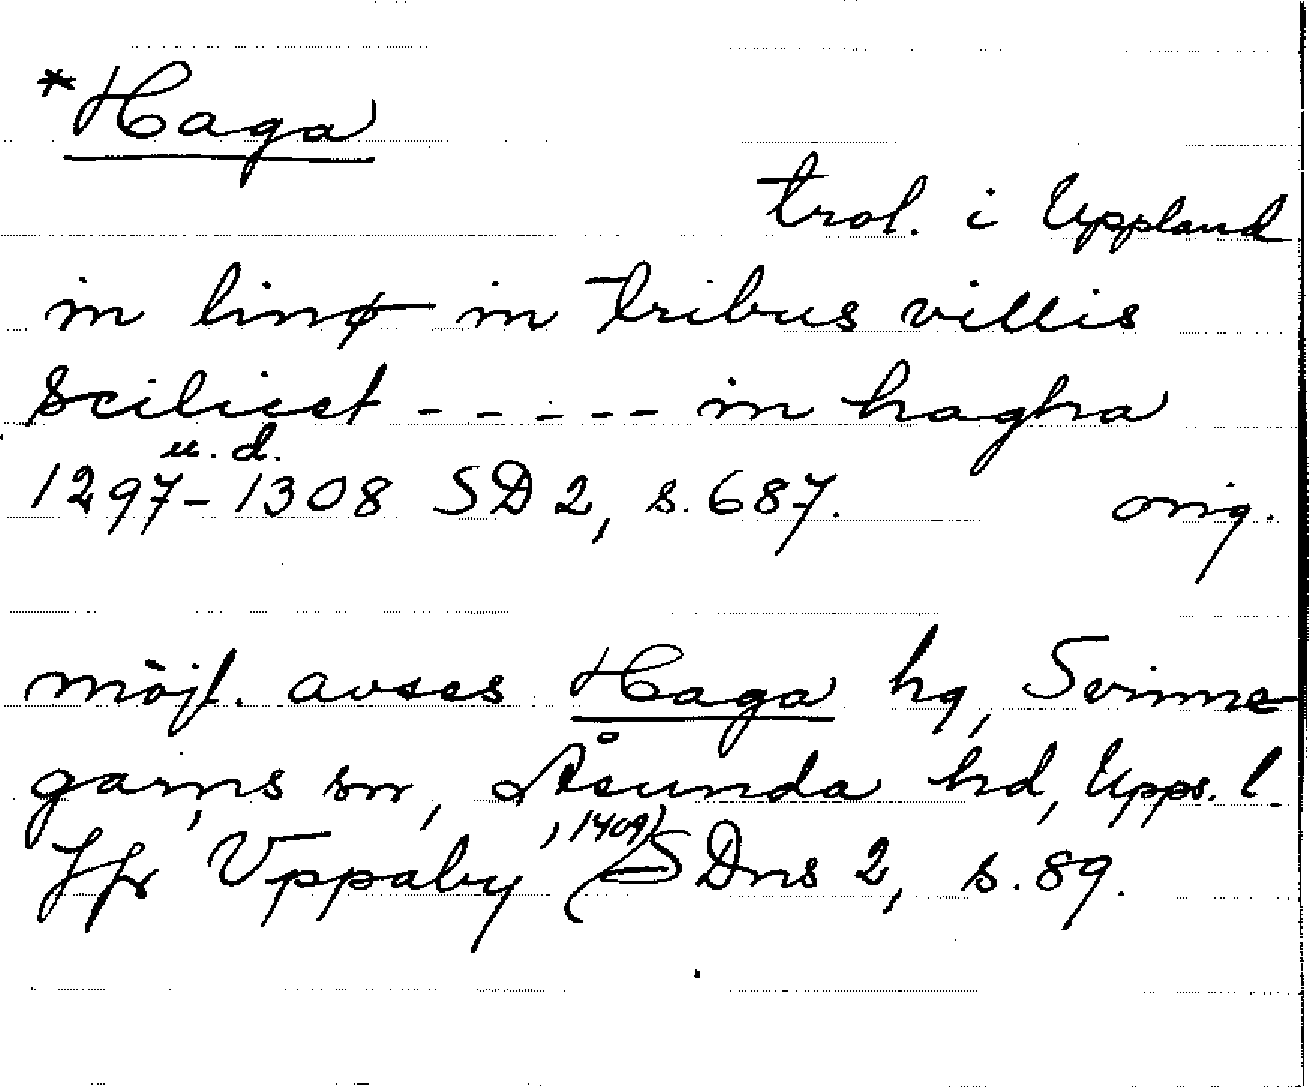 *Haga
trol. i Uppland
in linø in tribus villis
scilicet - - - - - in hagha
u. d.
1297-1308 SD 2, s. 687. orig.
möjl. avses Haga hg, Svinne
garns sn, Åsunda hd, Upps. l.
, 1409)
Jfr Vppaby (SDns 2, s. 89.